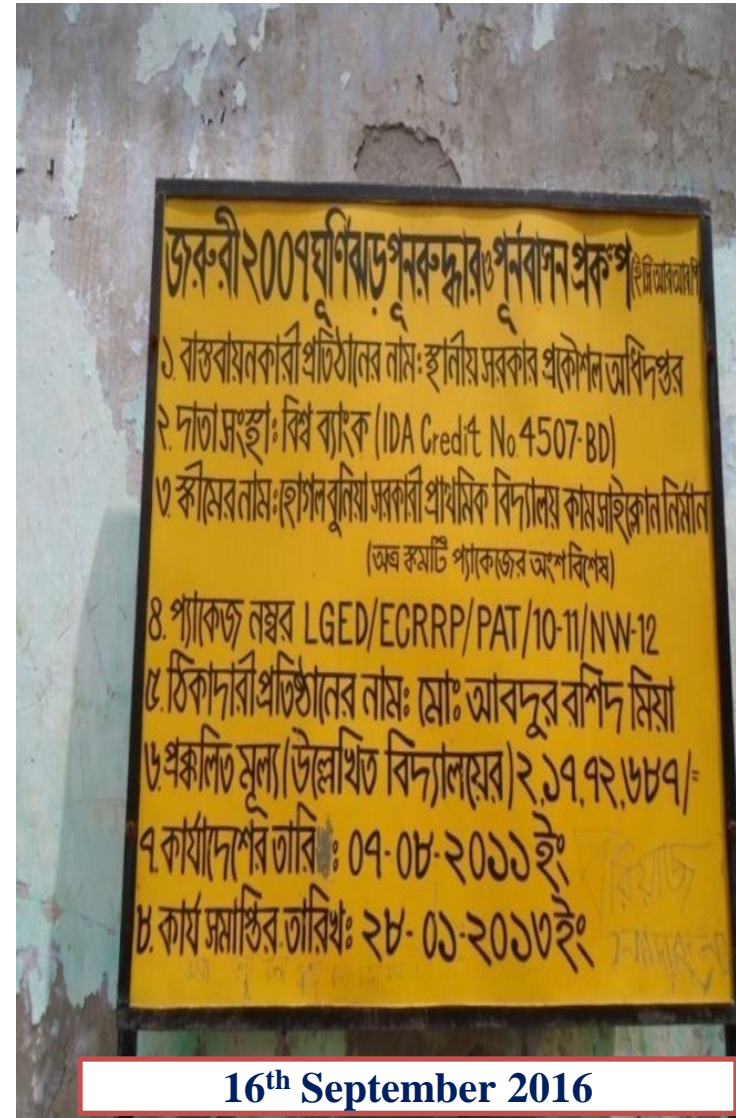 জরুরী ২০০৭ ঘূর্ণিঝড় পূনরুদ্ধার ও পূর্নবাসন প্রকল্প (ইসিআরআরপি)
১. বাস্তবায়নকারী প্রতিষ্ঠানের নাম: স্থানীয় সরকার প্রকৌশল অধিদপ্তর
২. দাতা সংস্থা: বিশ্ব ব্যাংক (IDA Credit No. 4507-BD)
৩. স্কীমের নাম: হোগলবুনিয়া সরকারী প্রাথমিক বিদ্যালয় কাম সাইক্লোন নির্মান
(অত্র স্কীমটি প্যাকেজের অংশ বিশেষ)
৪. প্যাকেজ নম্বর LGED/ECRRP/PAT/10-11/NW-12
৫. ঠিকাদারী প্রতিষ্ঠানের নাম: মোঃ আবদুর রশিদ মিয়া
৬. প্রক্কলিত মূল্য (উল্লেখিত বিদ্যালয়ের) ২,১৭,৭২,৬৮৭/=
৭. কার্যাদেশের তারি : ০৭-০৮-২০১১ ইং
৮. কার্য সমাপ্তির তারিখঃ ২৮-০১-২০১৩ ইং
16th September 2016